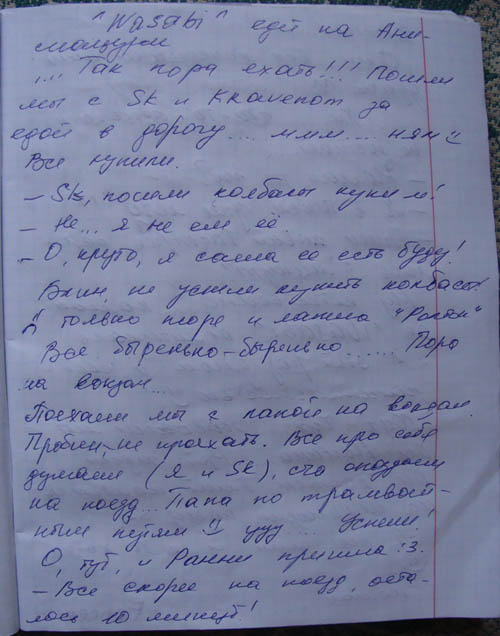 "Wasabi" едет на Ани-
мацурри
... Так пора ехать!!! Пошли
мы с Sk и Kravenom за
едой в дорогу... ммм... ням =)
Все купили.
– Sk, пошли колбасы купим!
– Не... я не ем её.
– О, круто, я сама её есть буду!
Блин, не успели купить колбасы!
только пюре и лапша "Ролтон"
Все быренько-быренько...... Пора
на вокзал...
Поехали мы с папой на вокзал.
Пробки, не проехать. Все про себя
думаем (я и Sk), что опоздаем
на поезд... Папа по трамвай-
ным путям =) ууу... Успели!
О, тут, и Ранни пришла :3.
– Все скорее на поезд, оста-
лось 10 минут!